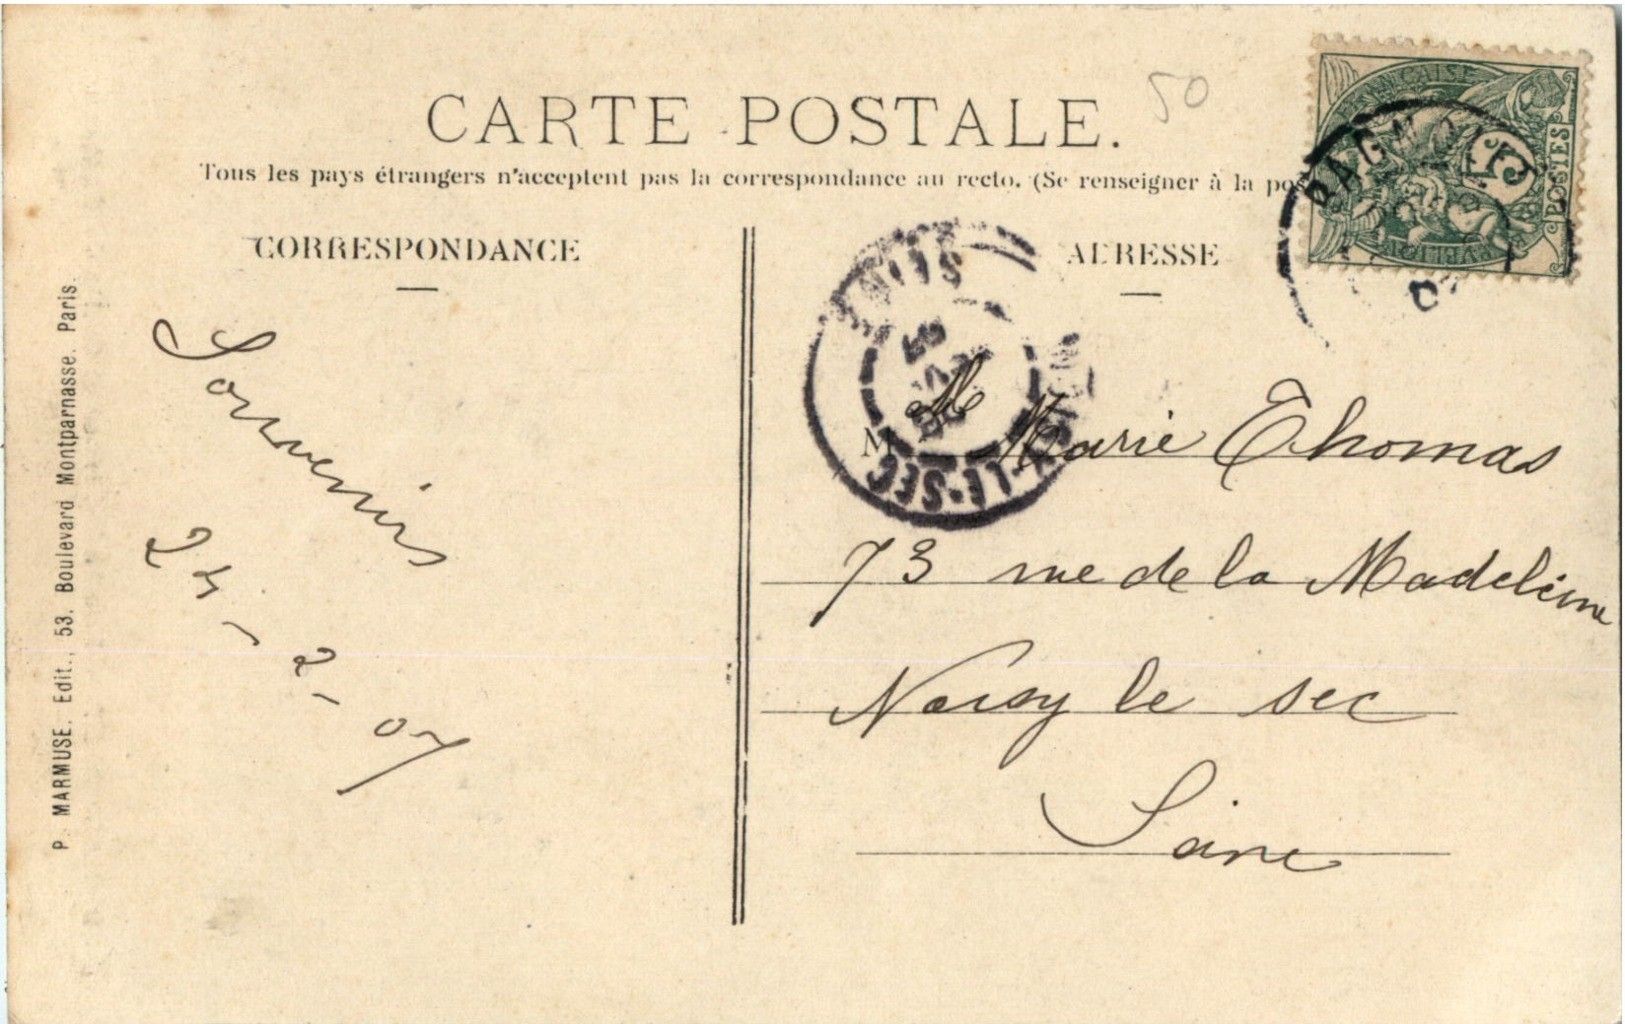 50
CARTE POSTALE.
Tous les pays étrangers n'acceptent pas la correspondance au recto. (Se renseigner à la pos
CORRESPONDANCE
ADRESSE
ÇAISE
15
POSTES
BAGNO
LE-SEC
Souvenirs
24-2-07
M Mlle Marie Thomas
73 rue de la Madeleine
Noisy le Sec
Seine
P. MARMUSE. Edit., 53. Boulevard Montparnasse. Paris.